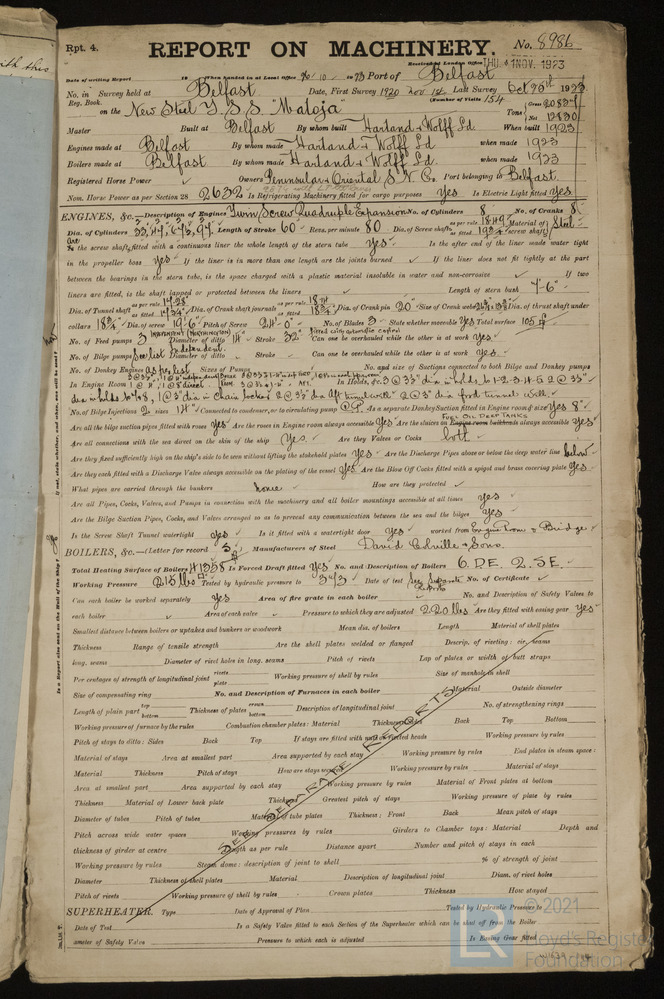 Rpt. 4. REPORT ON MACHINERY. No. 8986
Received at London Office THU. 1 NOV. 1923
Date of writing Report 19 When handed in at Local Office 30 10 1923 Port of Belfast
No. in Survey held at Belfast Date, First Survey 1920 Nov 14 Last Survey Oct 20th 1923
Reg. Book. (Number of Visits 154
on the New Steel T.S.S. "Maloja" Tons Gross 20837 Net 12830
Master Built at Belfast By whom built Harland & Wolff Ld When built 1923
Engines made at Belfast By whom made Harland & Wolff Ld when made 1923
Boilers made at Belfast By whom made Harland & Wolff Ld. when made 1923
Registered Horse Power Owners Peninsular & Oriental S. N. Co. Port belonging to Belfast.
Nom. Horse Power as per Section 28 2632 Is Refrigerating Machinery fitted for cargo purposes Yes Is Electric Light fitted Yes
ENGINES, &c.—Description of Engines Twin Screw Quadruple Expansion No. of Cylinders 8 No. of Cranks 8
Dia. of Cylinders Length of Stroke 60 Revs. per minute 80 Dia. of Screw shaft as per rule as fitted Material of screw shaft Steel
Is the screw shaft fitted with a continuous liner the whole length of the stern tube Yes Is the after end of the liner made water tight
in the propeller boss yes If the liner is in more than one length are the joints burned If the liner does not fit tightly at the part
between the bearings in the stern tube, is the space charged with a plastic material insoluble in water and non-corrosive If two
liners are fitted, is the shaft lapped or protected between the liners Length of stern bush 7'-6"
Dia. of Tunnel shaft as per rule as fitted Dia. of Crank shaft journals as per rule as fitted 18¾" Dia. of Crank pin 20" Size of Crank webs Dia. of thrust shaft under
collars 18¾" Dia. of screw 19'-6" Pitch of Screw 24'-0" No. of Blades 3 State whether moveable Yes Total surface
No. of Feed pumps 3 Independent Diameter of ditto 14" Stroke 32" Can one be overhauled while the other is at work yes
No. of Bilge pumps See list Independent Diameter of ditto Stroke Can one be overhauled while the other is at work yes.
No. of Donkey Engines as per list Sizes of Pumps No. and size of Suctions connected to both Bilge and Donkey pumps
In Engine Room In Holds, &c.
No. of Bilge Injections 2 sizes 14" Connected to condenser, or to circulating pump C.P. Is a separate Donkey Suction fitted in Engine room & size Yes 8"
FUEL OIL DEEP TANKS
Are all the bilge suction pipes fitted with roses Yes Are the roses in Engine room always accessible Yes Are the sluices on Engine room bulkheads always accessible Yes
Are all connections with the sea direct on the skin of the ship Yes Are they Valves or Cocks both
Are they fixed sufficiently high on the ship's side to be seen without lifting the stokehold plates Yes Are the Discharge Pipes above or below the deep water line below
Are they each fitted with a Discharge Valve always accessible on the plating of the vessel Yes Are the Blow Off Cocks fitted with a spigot and brass covering plate Yes
What pipes are carried through the bunkers none How are they protected
Are all Pipes, Cocks, Valves, and Pumps in connection with the machinery and all boiler mountings accessible at all times yes
Are the Bilge Suction Pipes, Cocks, and Valves arranged so as to prevent any communication between the sea and the bilges yes
Is the Screw Shaft Tunnel watertight yes Is it fitted with a watertight door yes worked from Engine Room & Bridge
BOILERS, &c.—(Letter for record S.) Manufacturers of Steel David Colville & Sons.
Total Heating Surface of Boilers Is Forced Draft fitted Yes No. and Description of Boilers 6 D.E. 2. S.E.
Working Pressure 215 lbs Tested by hydraulic pressure to 373 Date of test See Separate Reports No. of Certificate
Can each boiler be worked separately yes Area of fire grate in each boiler No. and Description of Safety Valves to
each boiler Area of each valve Pressure to which they are adjusted 220 lbs Are they fitted with easing gear yes
Smallest distance between boilers or uptakes and bunkers or woodwork Mean dia. of boilers Length Material of shell plates
Thickness Range of tensile strength Are the shell plates welded or flanged Descrip. of riveting: cir. seams
long. seams Diameter of rivet holes in long. seams Pitch of rivets Lap of plates or width of butt straps
Per centages of strength of longitudinal joint rivets plate Working pressure of shell by rules Size of manhole in shell
Size of compensating ring No. and Description of Furnaces in each boiler Material Outside diameter
Length of plain part top bottom Thickness of plates crown bottom Description of longitudinal joint No. of strengthening rings
Working pressure of furnace by the rules Combustion chamber plates: Material Thickness: Sides Back Top Bottom
Pitch of stays to ditto: Sides Back Top If stays are fitted with nuts or riveted heads Working pressure by rules
Material of stays Area at smallest part Area supported by each stay Working pressure by rules End plates in steam space:
Material Thickness Pitch of stays How are stays secured Working pressure by rules Material of stays
Area at smallest part Area supported by each stay Working pressure by rules Material of Front plates at bottom
Thickness Material of Lower back plate Thickness Greatest pitch of stays Working pressure of plate by rules
Diameter of tubes Pitch of tubes Material of tube plates Thickness: Front Back Mean pitch of stays
Pitch across wide water spaces Working pressures by rules Girders to Chamber tops: Material Depth and
thickness of girder at centre Length as per rule Distance apart Number and pitch of stays in each
Working pressure by rules Steam dome: description of joint to shell % of strength of joint
Diameter Thickness of shell plates Material Description of longitudinal joint Diam. of rivet holes
Pitch of rivets Working pressure of shell by rules Crown plates Thickness How stayed
SEE SEPARATE REPORTS
SUPERHEATER. Type Date of Approval of Plan Tested by Hydraulic Pressure to
Date of Test Is a Safety Valve fitted to each Section of the Superheater which can be shut off from the Boiler
Diameter of Safety Valve Pressure to which each is adjusted Is Easing Gear fitted
© 2021
Lloyd's Register
Foundation